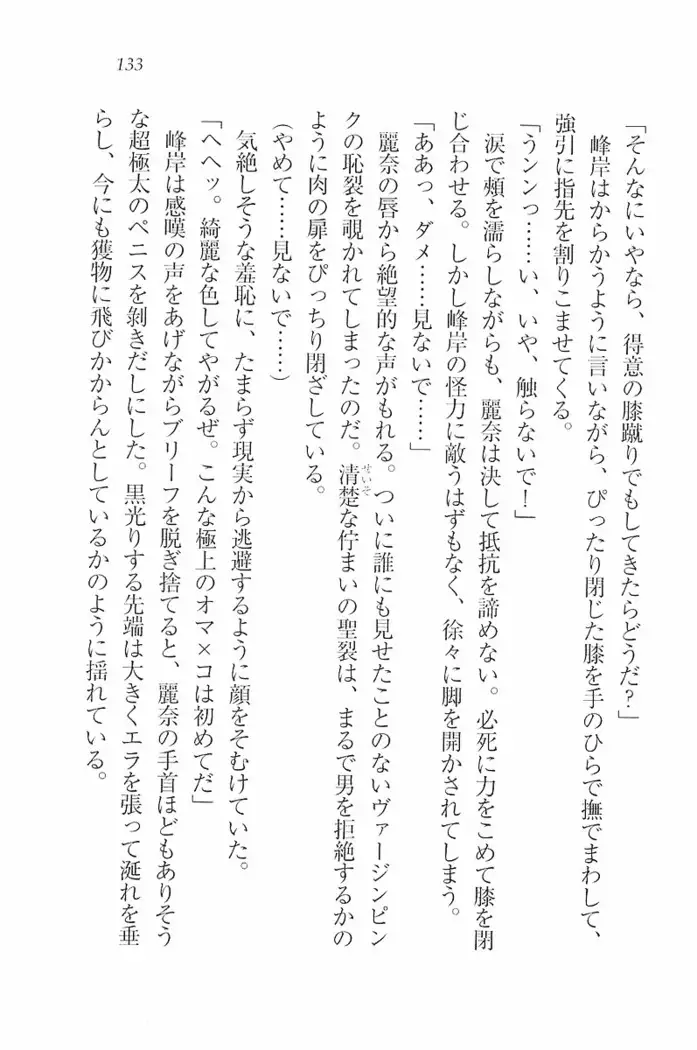 133
「そんなにいやなら、得意の膝蹴りでもしてきたらどうだ?」
峰岸はからかうように言いながら、ぴったり閉じた膝を手のひらで撫でまわして、
強引に指先を割りこませてくる。
「うンンっ……い、いや、触らないで!」
涙で頬を濡らしながらも、麗奈は決して抵抗を諦めない。必死に力をこめて膝を閉
じ合わせる。しかし峰岸の怪力に敵うはずもなく、徐々に脚を開かされてしまう。
「ああっ、ダメ……見ないで……」
麗奈の唇から絶望的な声がもれる。ついに誰にも見せたことのないヴァージンピン
クの恥裂を覗かれてしまったのだ。清楚な佇まいの聖裂は、まるで男を拒絶するかの
せいそ
ように肉の扉をぴっちり閉ざしている。
(やめて……見ないで……)
気絶しそうな羞恥に、たまらず現実から逃避するように顔をそむけていた。
「へヘッ。綺麗な色してやがるぜ。こんな極上のオマ×コは初めてだ」
峰岸は感嘆の声をあげながらブリーフを脱ぎ捨てると、麗奈の手首ほどもありそう
な超極太のペニスを剝きだしにした。黒光りする先端は大きくエラを張って涎れを垂
らし、今にも獲物に飛びかからんとしているかのように揺れている。